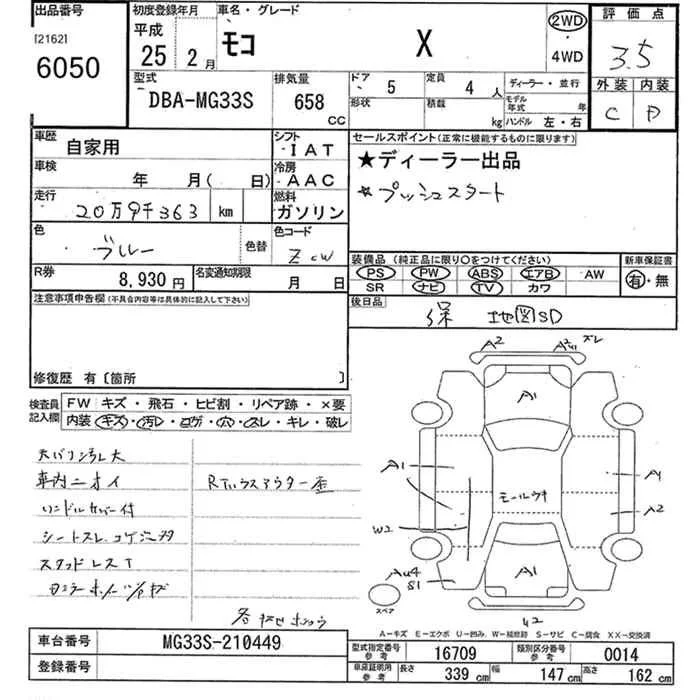 出品番号
[2162]
6050
初度登録年月
平成
25 年 2 月
車名・グレード
モコ X
2WD
・
4WD
評価点
3.5
外装 内装
C D
型式
DBA-MG33S
排気量
658
CC
ドア 5
定員 4 人
ディーラー・並行
形状
積載 kg
モデル年式 年
ハンドル 左・右
車歴
自家用
シフト
IAT
セールスポイント(正常に機能するものに限ります)
★ディーラー出品
★プッシュスタート
車検
年 月( 日)
冷房
AAC
走行
20万9千363 km
燃料
ガソリン
色
ブルー
色替
色コード
ZCW
装備品 (純正品に限り○をつけてください)
PS PW ABS エアB AW
SR ナビ TV カワ
新車保証書
有・無
R券
8,930 円
名変通知期限
月 日
後日品
保 地図SD
注意事項申告欄(不具合内容等は具体的に記入して下さい)
修復歴 有〔箇所 〕
検査員
記入欄
FW キズ・飛石・ヒビ割・リペア跡・×要
内装 キズ・汚レ・コゲ・穴・スレ・キレ・破レ
天バリ汚レ大
車内ニオイ
ハンドルカバー付
シートスレ コゲ
スタッドレスT
A2
ズレ
A1
A1
モールウキ
A4
A2
W2
A1
AU4
S1
スペア
U2
A－キズ E－エクボ U－凹み W－補修跡 S－サビ C－腐食 XX－交換済
車台番号
MG33S-210449
登録番号
型式指定番号
参考
16709
類別区分番号
参考
0014
車庫証明用
参考
長さ 339 cm 幅 147 cm 高さ 162 cm